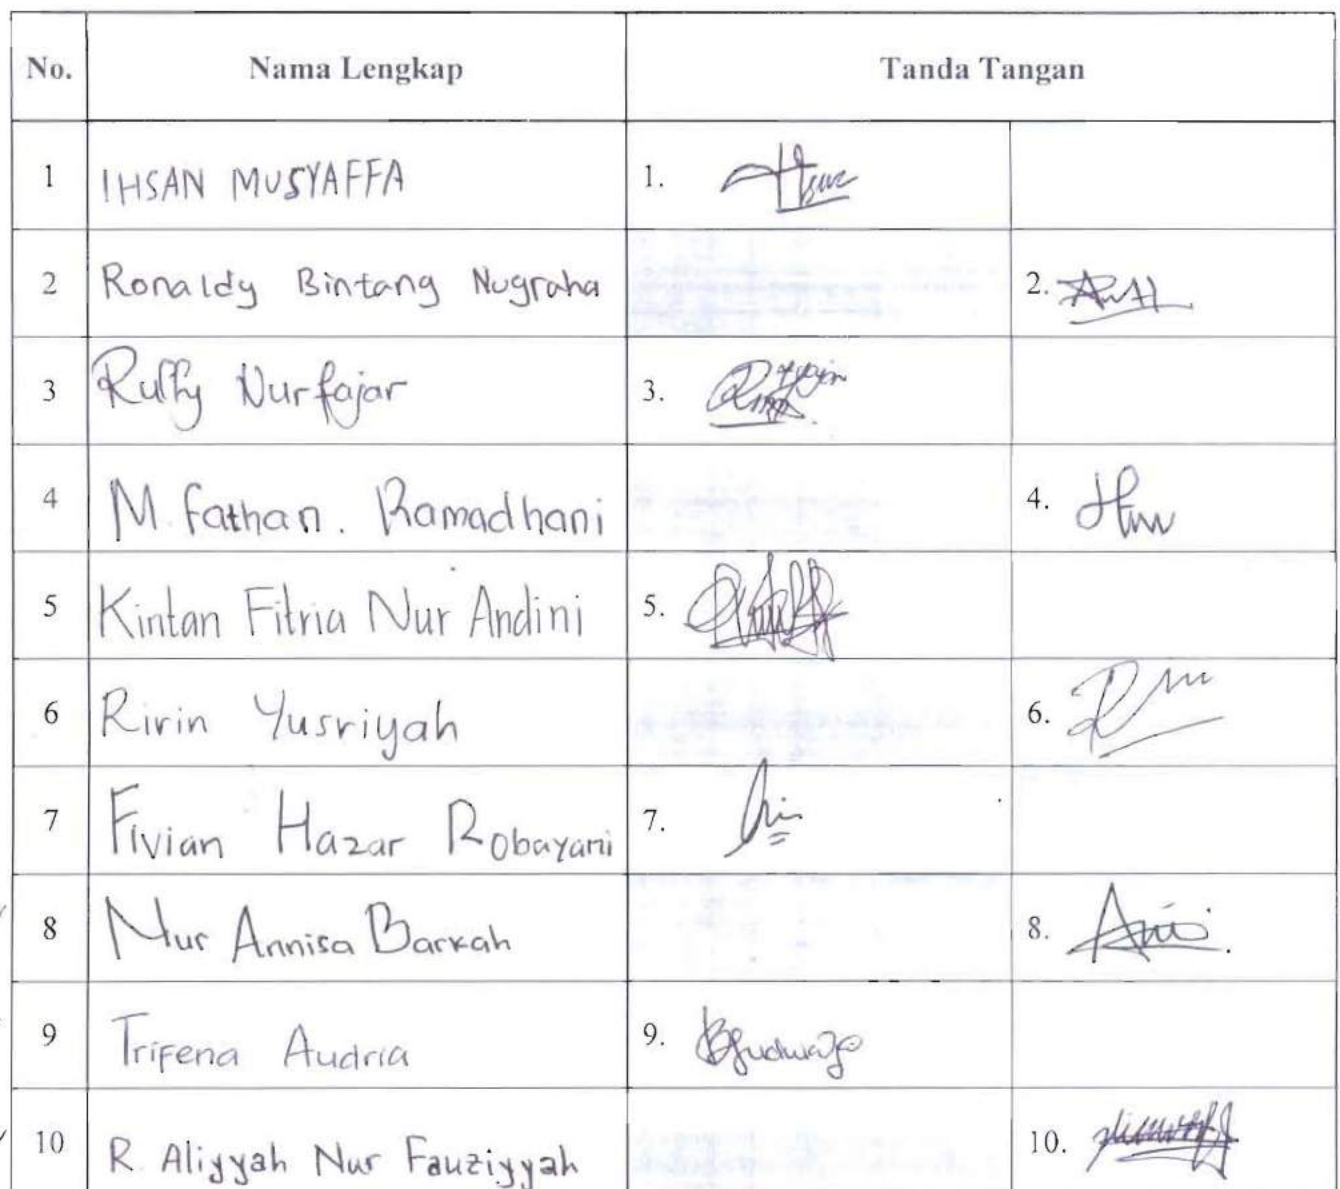 No. Nama Lengkap Tanda Tangan
1 IHSAN MUSYAFFA 1.
2 Ronaldy Bintang Nugraha 2.
3 Rully Nurfajar 3.
4 M. Fathan. Ramadhani 4.
5 Kintan Fitria Nur Andini 5.
6 Ririn Yusriyah 6.
7 Fivian Hazar Robayani 7.
8 Nur Annisa Barkah 8.
9 Trifena Audria 9.
10 R. Aliyyah Nur Fauziyyah 10.